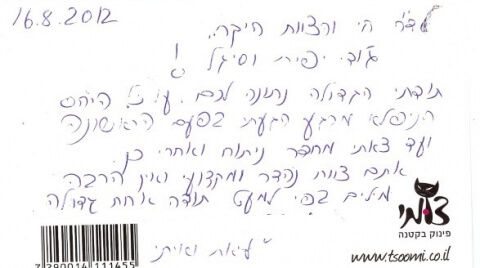 16.8.2012
לד״ר חי וצוות היקר..
גודי יפית וסיגל !
תודתי הגדולה נתונה לכם. על כל היחס
הנפלא מרגע הגעתי בפעם הראשונה
ועד צאתי מחדר ניתוח ואחרי כן.
אתם צוות נהדר ומקצועי ואין הרבה
מילים בפי למעט תודה אחת גדולה
ליאת ואיתי
צומי
פינוק בקטנה
www.tsoomi.co.il
7290014111455